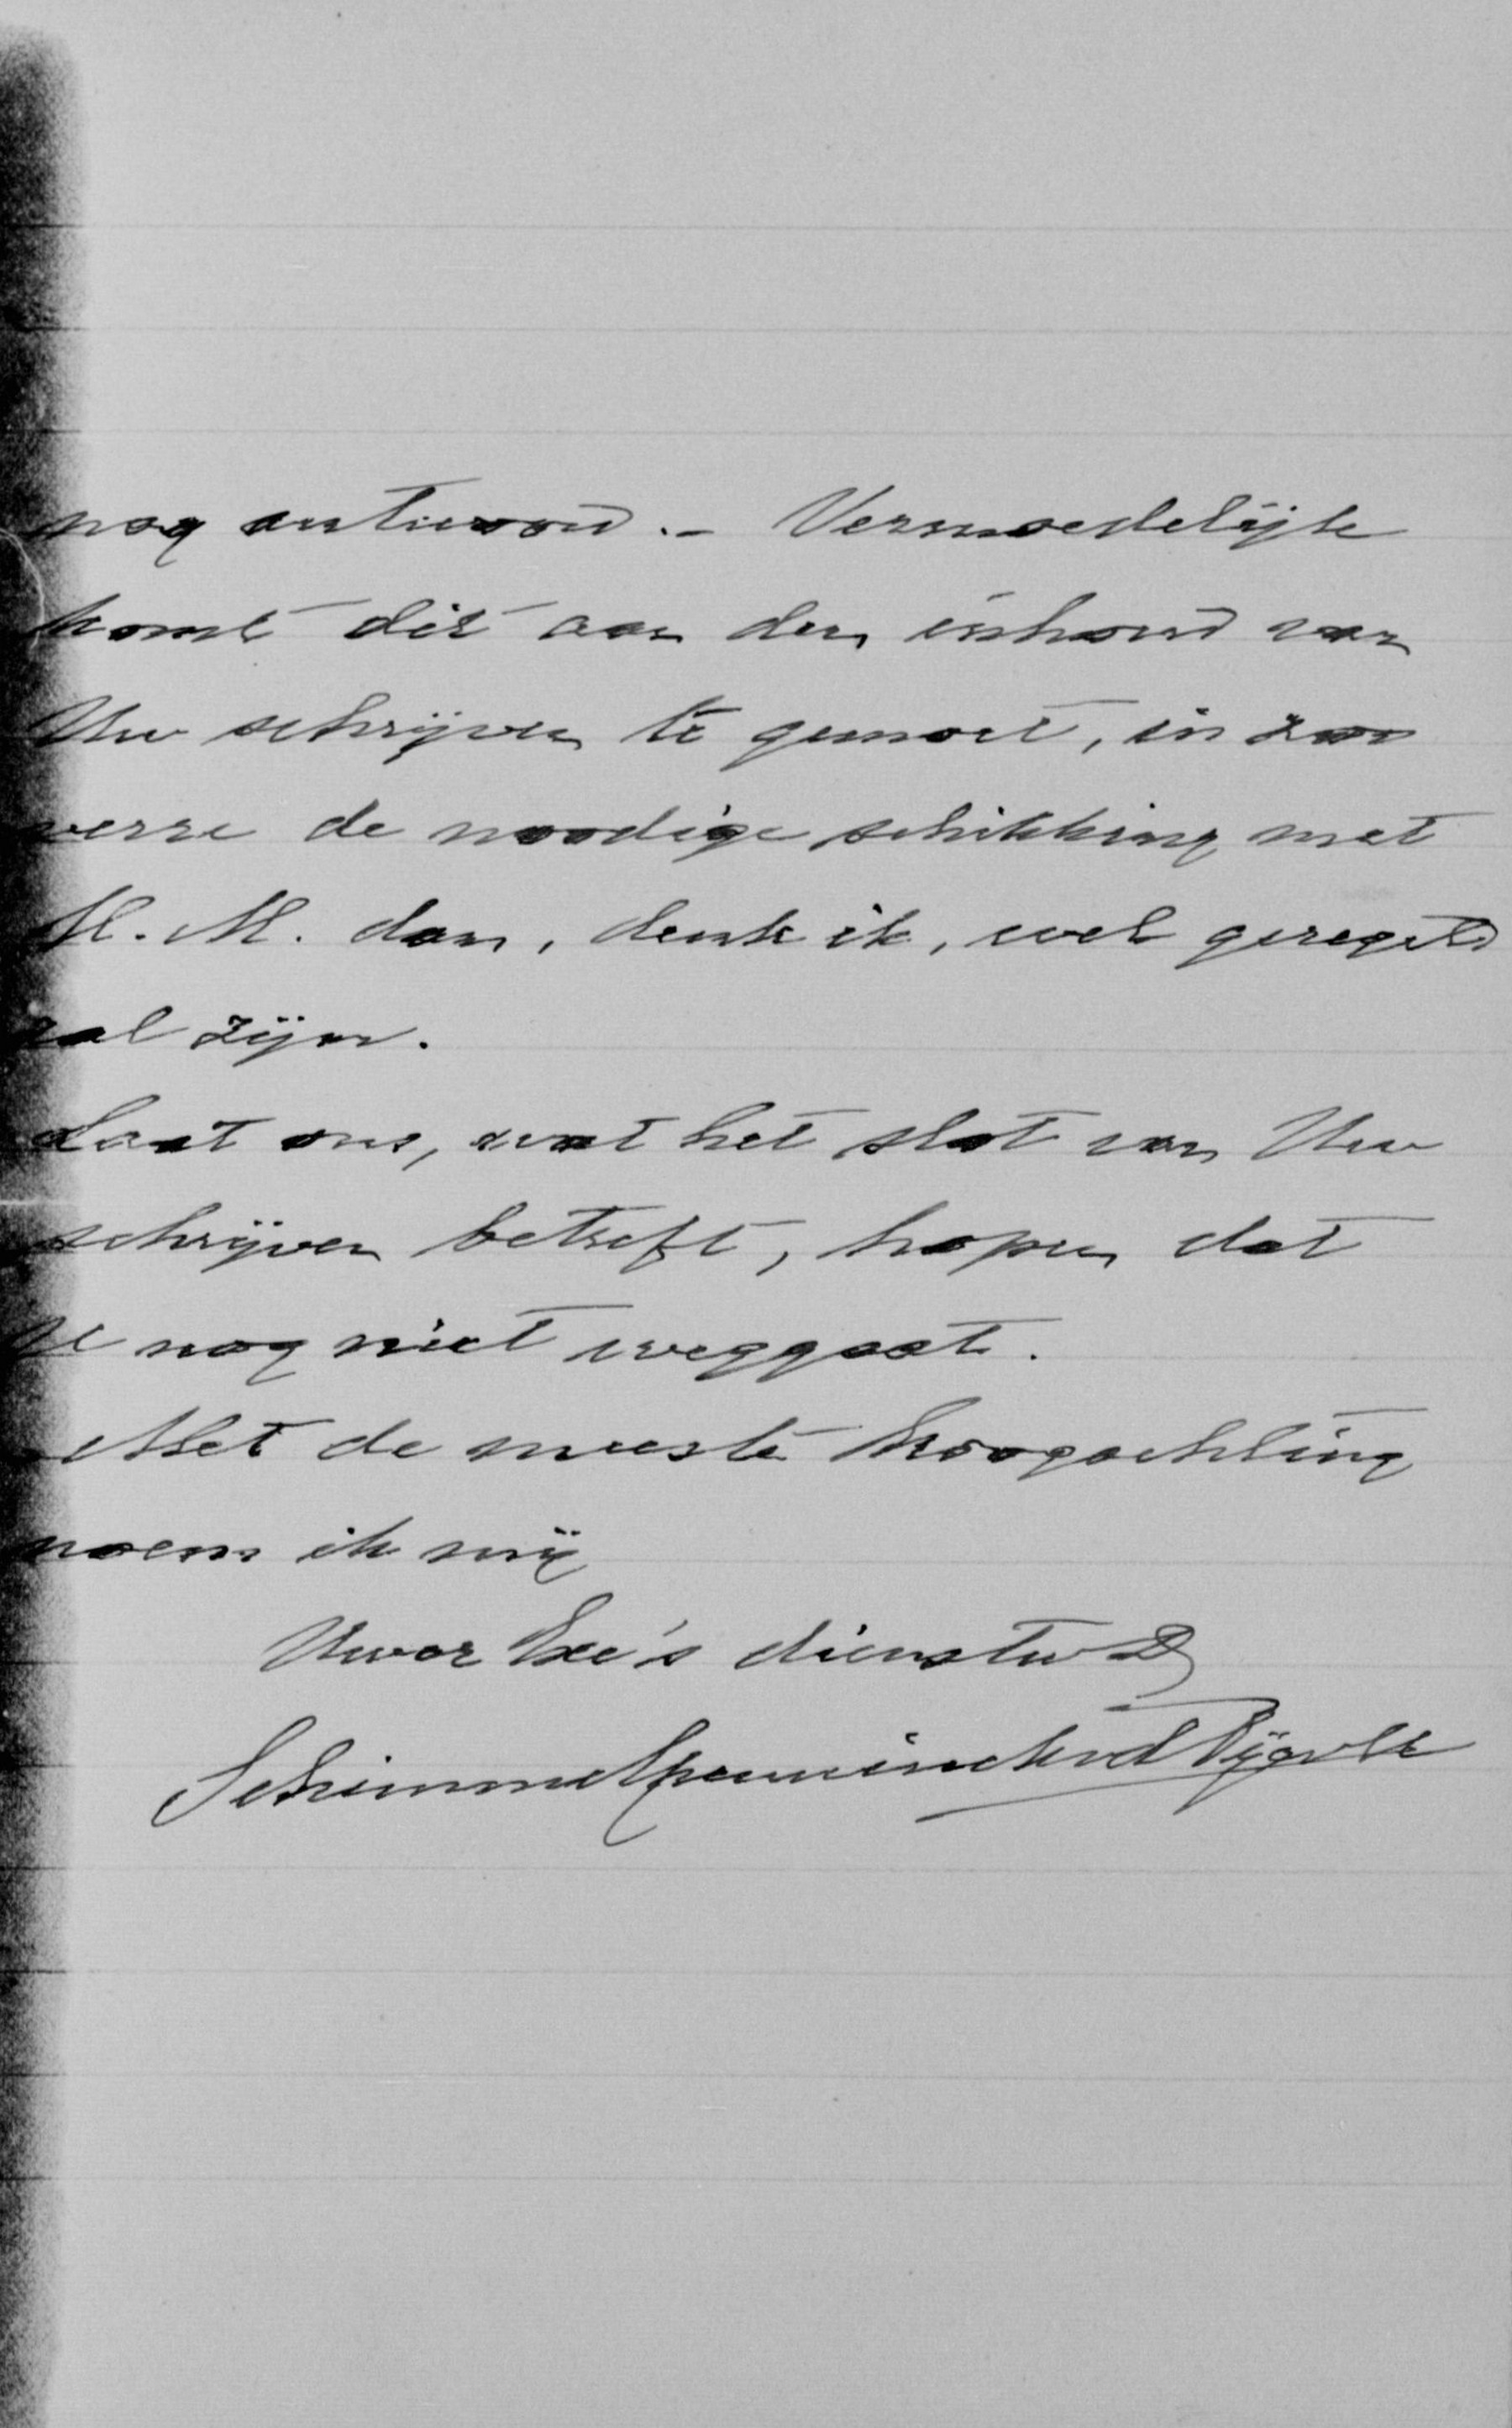 nog antwoord. - Vermoedelijk
komt dit aan den inhoud van
Uw schrijven te gemoet, in zoo
verre de noodige schikking met
H. M. dan, denk ik, wel geregeld
zal zijn.
Laat ons, wat het slot van Uw
schrijven betreft, hopen dat
U nog niet weggaat.
Met de meeste hoogachting
noem ik mij
Uwer Exc's dienstw D
Schimmelpenninck vd Nijevelt